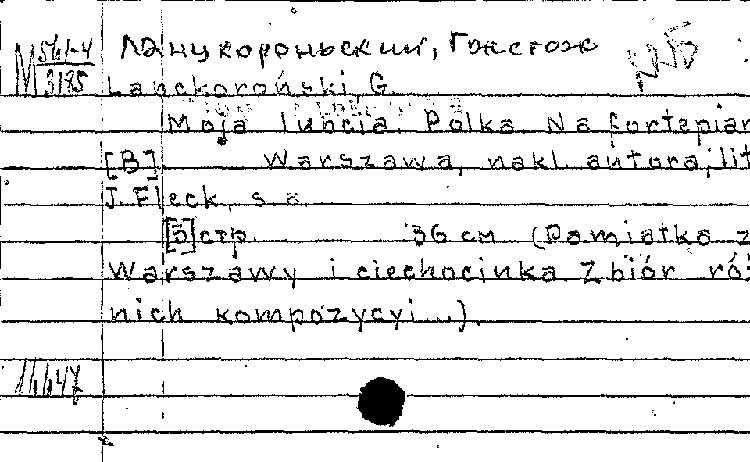 М 561-4
3195
Ланцкороньский, Гжегож
Lanckoroński, G.
Moja lubcia. Polka. Na fortepian
[B] Warszawa, nakl. autora, lit
J. Fleck, s. a.
[5] стр. 36 см (Pamiatka z
Warszawy i ciechocinka Zbiór róż
nich kompozycyi...).